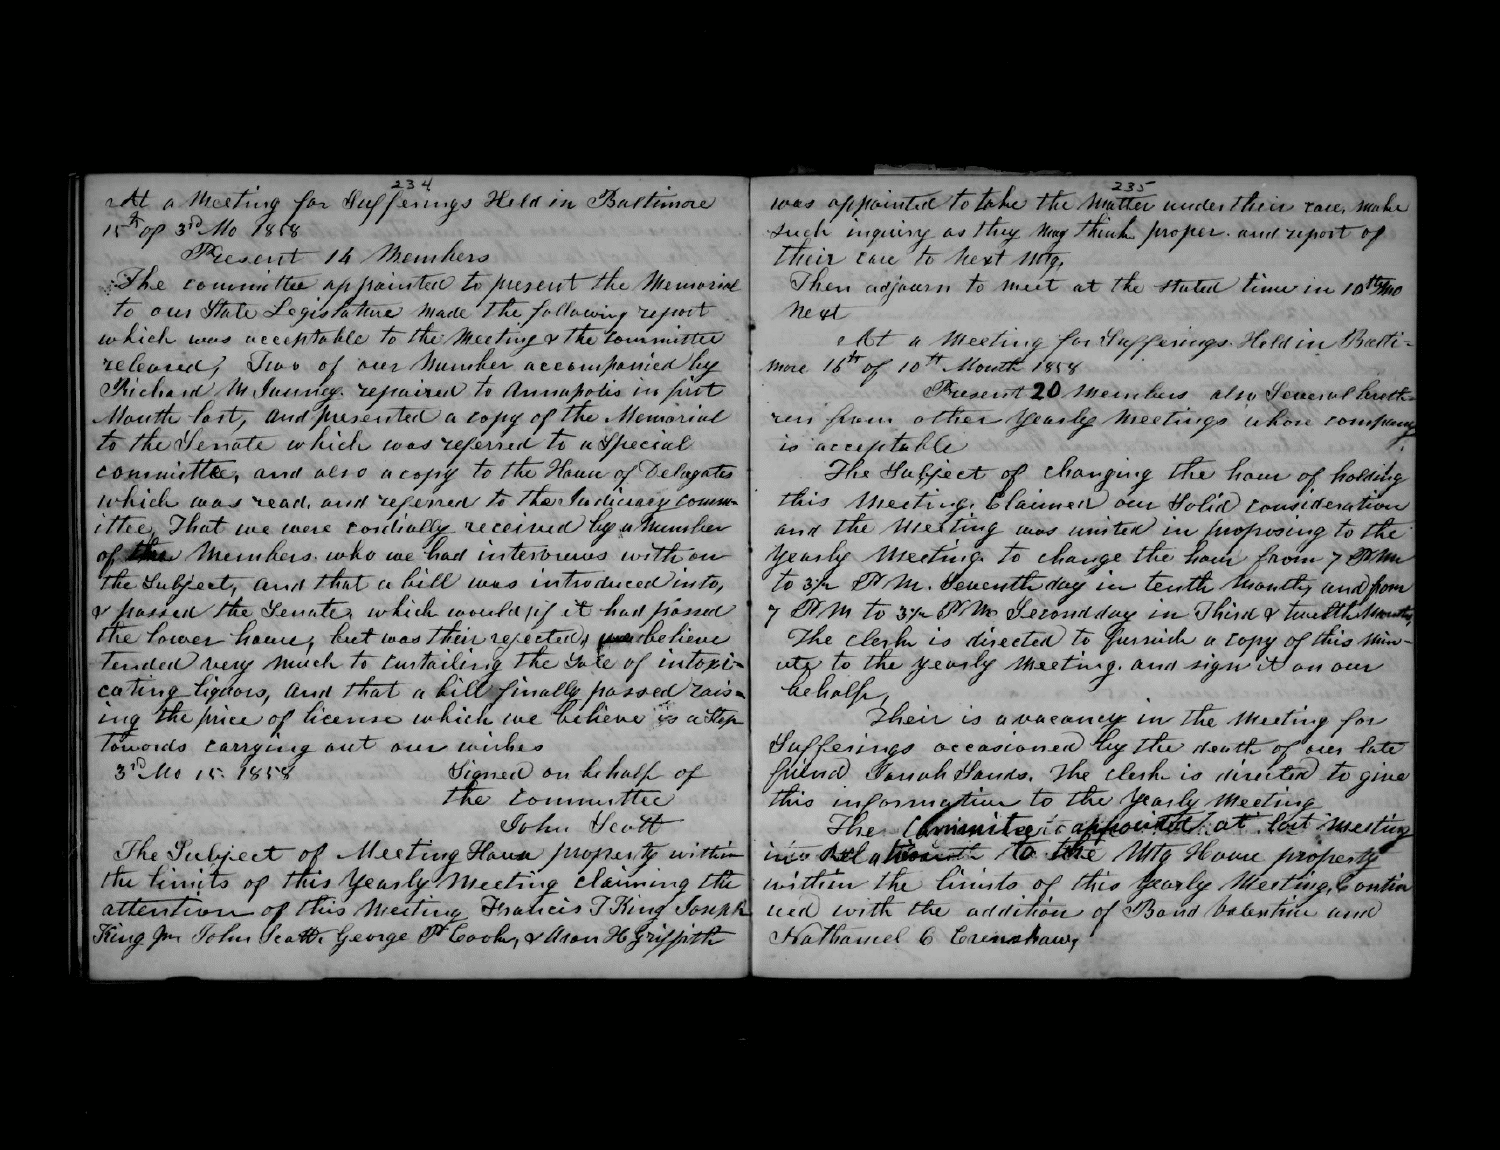 234
At a Meeting for Sufferings Held in Baltimore
15th of 3rd Mo 1858
Present 14 Members
The committee appointed to present the Memorial
to our State Legislature made the following report
which was acceptable to the Meeting & the Committee
released, Two of our Number accompanied by
Richard M Janney repaired to Annapolis in first
Month last, and presented a copy of the Memorial
to the Senate which was referred to a Special
committe, and also a copy to the House of Delagates
which was read, and referred to the Judiciary comm-
ittee, That we were cordially received by a Number
of the Members who we had interviews with on
the Subject, and that a bill was introduced into,
& passed the Senate, which would, if it had passed
the lower house, but was their rejected, we believe
tended very much to curtailing the Sale of intoxi-
cating liquors, and that a bill finally passed rais-
ing the price of license which we believe is a Step
towords carrying out our wishes
3rd Mo 15. 1858 Signed on behalf of
the Committee
John Scott
The Subject of Meeting House property within
the limits of this Yearly Meeting claiming the
attention of this Meeting Francis T King Joseph
King Jr John Scott, George P Cook, & Aron H Griffith
235
was appointed to take the Matter under their care, make
such inquiry as they may think proper and report of
their care to Next Mtg.
Then adjourn to meet at the stated time in 10th Mo
Next
At a Meeting for Sufferings Held in Balti-
more 16th of 10th Month 1858
Present 20 Members also Several breth-
ren from other Yearly Meetings whose company
is acceptable
The Subject of changing the hour of holding
this Meeting, Claimed our Solid consideration
and the Meeting was united in proposing to the
Yearly Meeting to change the hour from 7 P.M
to 3½ P M. Seventh day in tenth Month, and from
7 P M to 3½ P M Second day in Third & twelth Months,
The clerk is directed to furnish a copy of this Min-
ute to the yearly Meeting, and sign it on our
behalf,
Their is a vacancy in the Meeting for
Sufferings occasioned by the death of our late
friend Sands. The clerk is directed to give
this information to the Yearly Meeting
The Committee appointed at last Meeting
in Relation to the Mtg House property
within the limits of this Yearly Meeting, Contin
ued with the addition of Bond Valentine and
Nathaniel C Crenshaw,